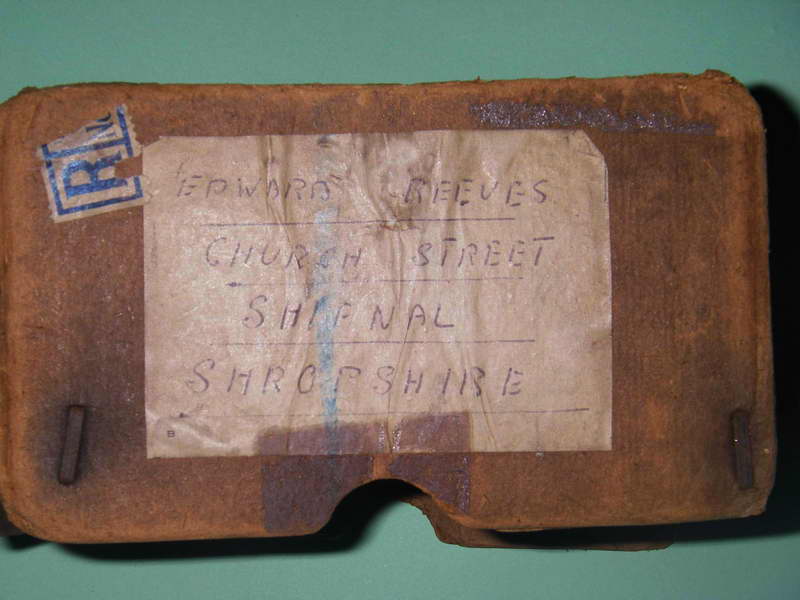 R
EDWARD REEVES
CHURCH STREET
SHIFNAL
SHROPSHIRE
B